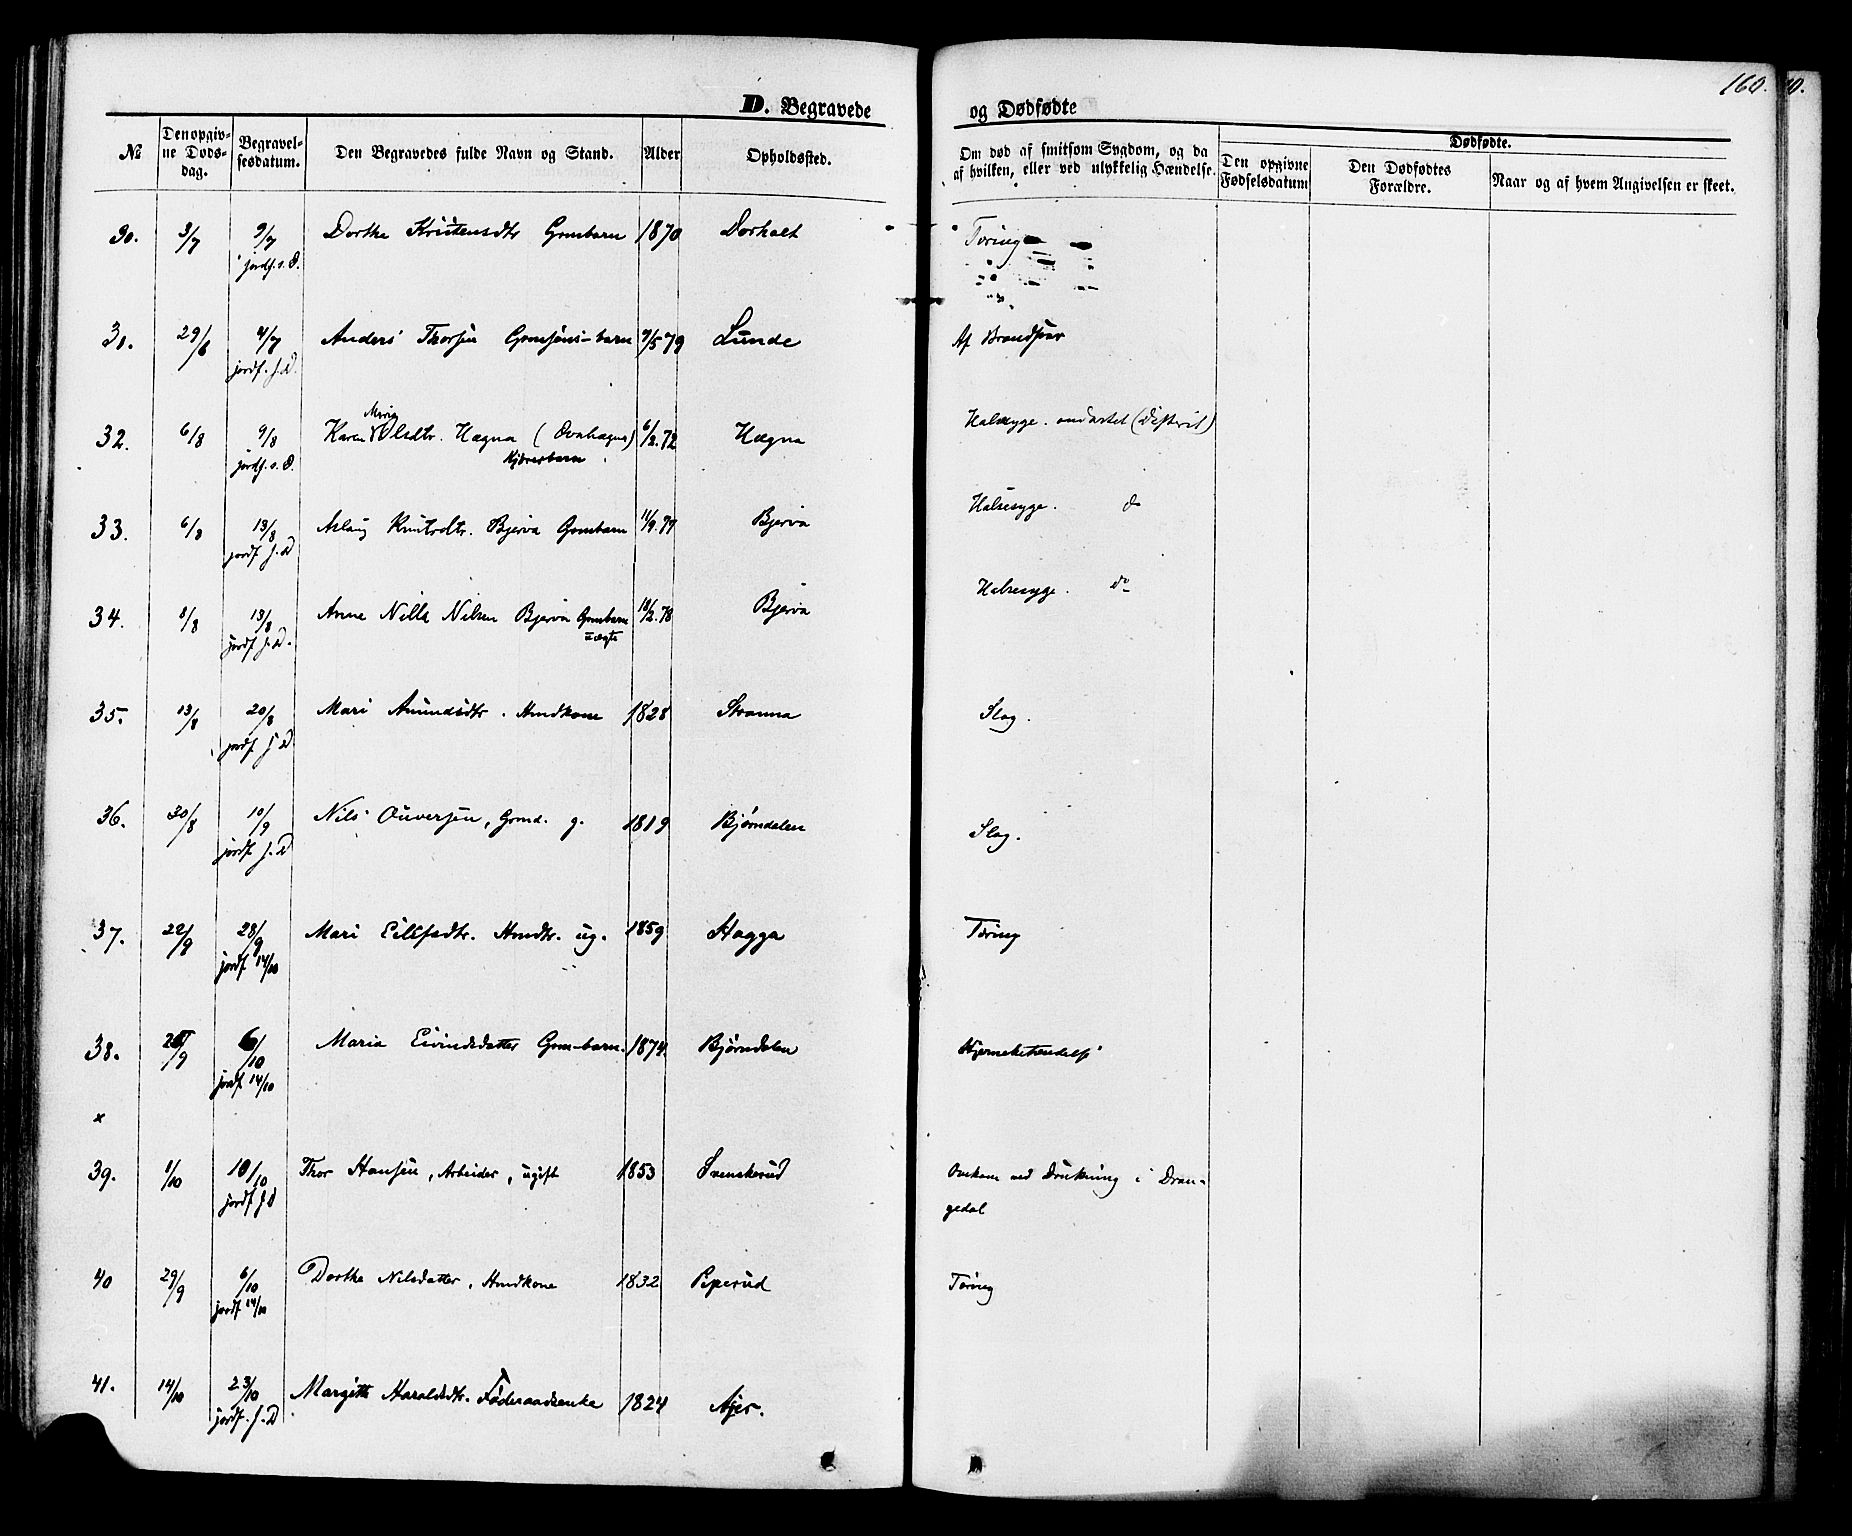 160.
D. Begravede og Dødfødte
№ Den opgivne Dødsdag. Begravelsesdatum. Den Begravedes fulde Navn og Stand. Alder Opholdssted. Om død af smitsom Sygdom, og da af hvilken, eller ved ulykkelig Hændelse. Dødfødte. Den opgivne Fødselsdatum Den Dødfødtes Forældre. Naar og af hvem Angivelsen er skeet.
30. 3/7 9/7 Dorthe Kristensdtr Gmbarn 1870 Dorholt Tæring
jordf. s. D.
31. 29/6 4/7 Anders Thorsen 79 Lunde Af Brandsaar
jordf. s. D.
Marie
32. 6/8 9/8 Karen Olsdtr. Hægna 6/2.72 Hægna Halssyge. ondartet
jordf. s. D.
33. 6/8 13/8 Aslaug Knutsdtr. Bjerva Gmbarn Bjerva Halssyge. do
jordf s. D
34. 8/8 13/8 Anne Nilsen Bjerva Gmbarn 18/2.78 Bjerva Halssyge. do
jordf s. D. uægte
35. 13/8 20/8 Mari Amundsdtr. Hmdkone 1828 Stranna Slag.
jordf s D.
36. 30/8 10/9 Nils Ouversen, Grmd. g. 1819 Bjørndalen Slag.
jordf s. D
37. 22/9 28/9 Mari Eilefsdtr. Hmdtr. ug. 1859 Hagga Tæring
jordf. 14/10
38. 6/10 Maria Eivindsdatter Gm-barn. 1874. Bjørndalen
jordf 14/10
x
39. 1/10 10/10 Thor Hansen, Arbeider, ugift 1853 Svenskerud Omkom ved Drukning i Dran-
jordf. s. D gedal
40 29/9 6/10 Dorthe Nilsdatter, Hmdkone 1832 Peperud Tæring
jordf. 14/10
41. 14/10 23/10 Margithe Haraldsdtr. Føderaadsenke 1824 Ajer.
jordf. s. D